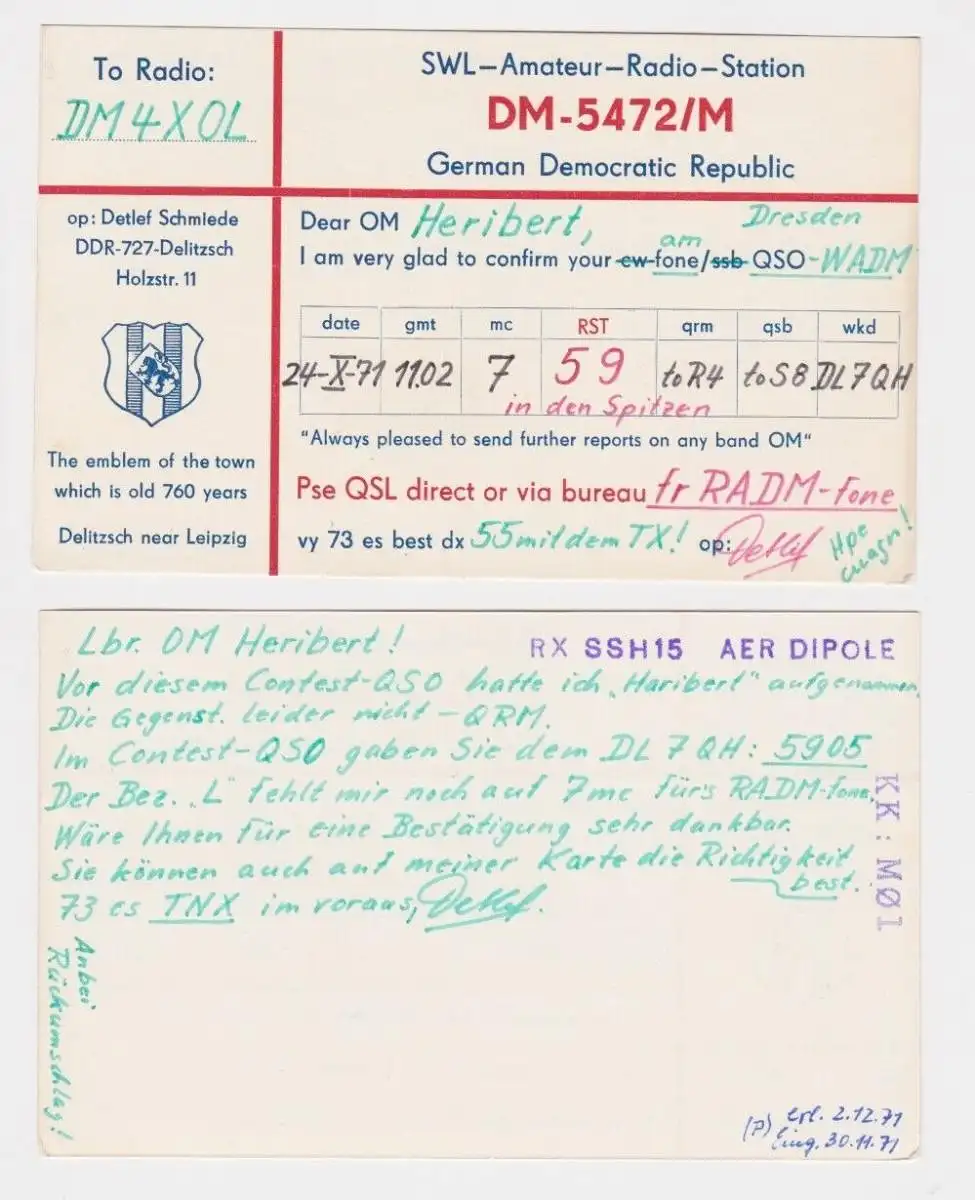 To Radio:
DM4XOL
SWL–Amateur–Radio–Station
DM-5472/M
German Democratic Republic
op: Detlef Schmiede
DDR-727-Delitzsch
Holzstr. 11
The emblem of the town
which is old 760 years
Delitzsch near Leipzig
Dear OM Heribert, Dresden
am
I am very glad to confirm your cw-fone/ssb QSO-WADM
date gmt mc RST qrm qsb wkd
24-X-71 11.02 7 59 to R4 to S8 DL7QH
in den Spitzen
"Always pleased to send further reports on any band OM"
Pse QSL direct or via bureau fr RADM-fone
vy 73 es best dx 55 mit dem TX! op: Detlef
Hpe
cuagn!
Lbr. OM Heribert!
RX SSH15 AER DIPOLE
Vor diesem Contest-QSO hatte ich „Haribert" aufgenommen.
Die Gegenst. leider nicht – QRM.
Im Contest-QSO gaben Sie dem DL7QH: 5905
Der Bez. „L" fehlt mir noch auf 7mc für's RADM-fone.
Wäre Ihnen für eine Bestätigung sehr dankbar.
Sie können auch auf meiner Karte die Richtigkeit
best.
73 es TNX im voraus, Detlef.
KK: MØ1
Anbei
Rückumschlag!
(P) erl. 2.12.71
Eing. 30.11.71